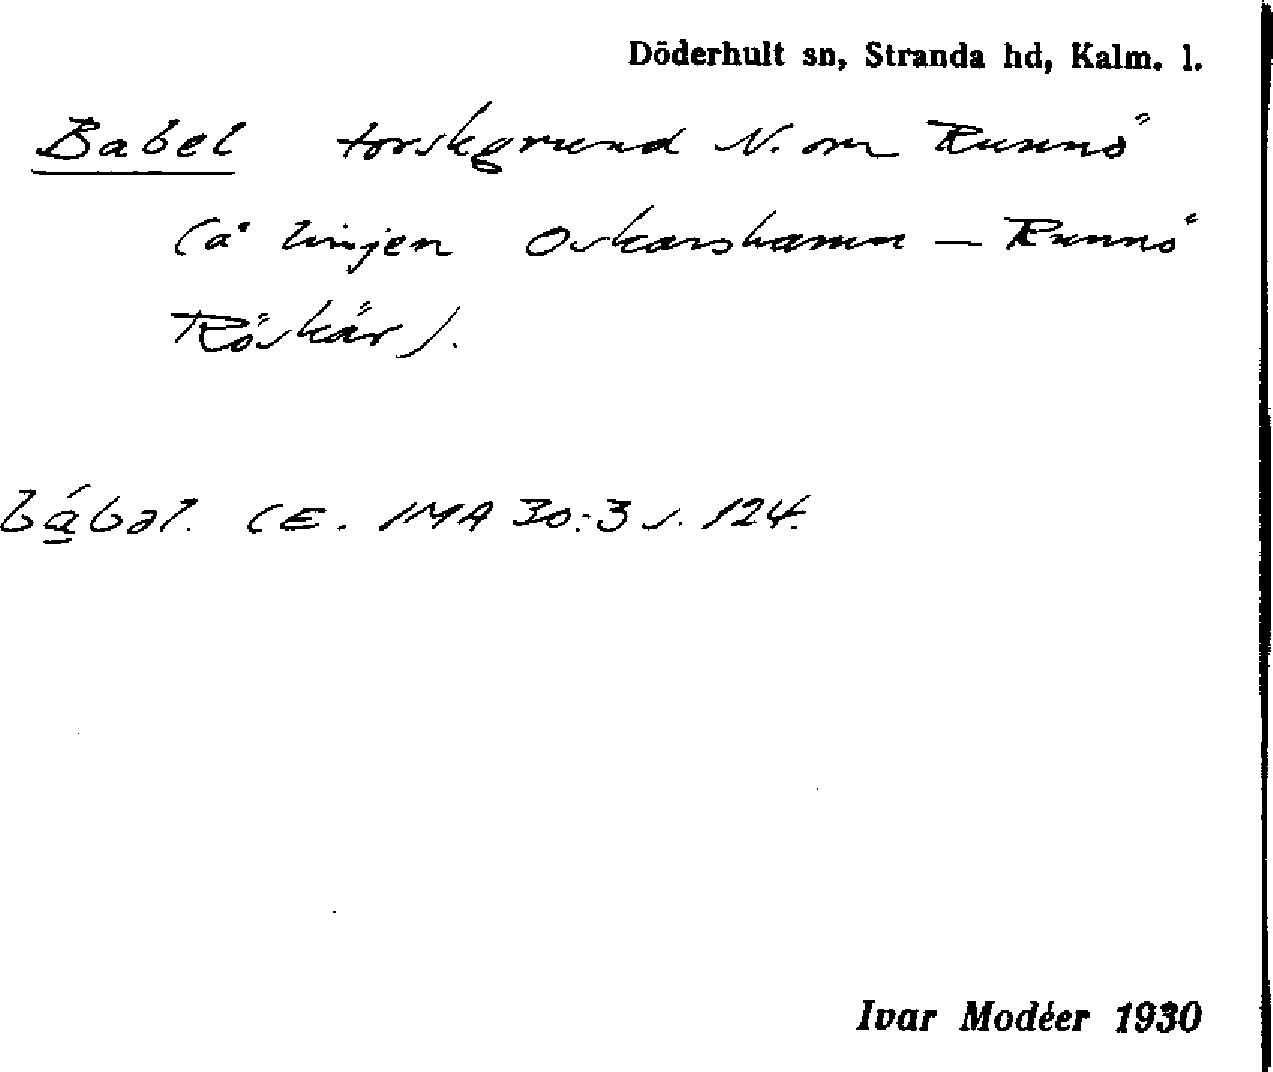 Döderhult sn, Stranda hd, Kalm. l.
Babel torskgrund N. om Runnö
(å linjen Oskarshamn — Runnö
Röskär).
bá̱bəl. CE. IMA 30:3 s. 124.
Ivar Modéer 1930